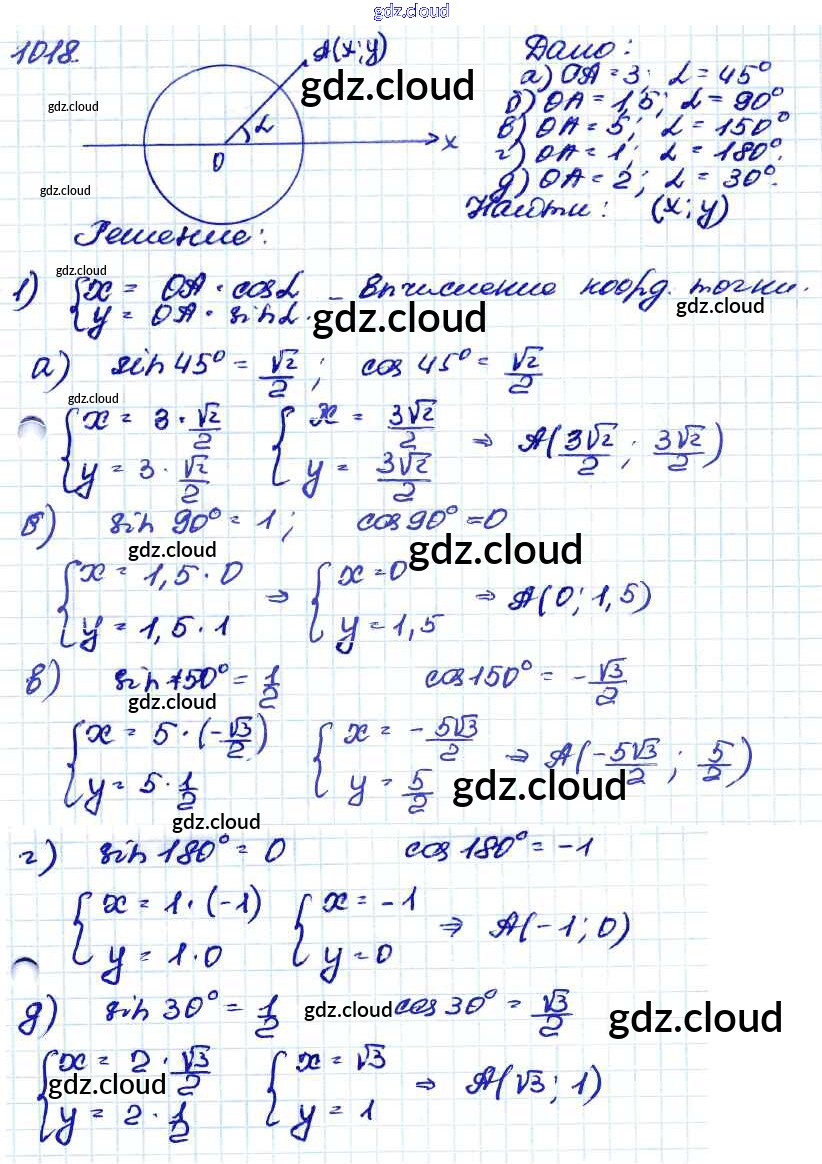 gdz.cloud
1018.
A(x;y)
Дано:
а) OA = 3; L = 45°
gdz.cloud
gdz.cloud
б) OA = 1,5; L = 90°
в) OA = 5; L = 150°
L
x
O
г) OA = 1; L = 180°.
gdz.cloud
д) OA = 2; L = 30°.
Найти: (x;y)
Решение:
gdz.cloud
1) { x = OA · cos L
y = OA · sin L.
– Вычисление коорд. точки.
gdz.cloud
gdz.cloud
а) sin 45° = √2/2; cos 45° = √2/2
gdz.cloud
{ x = 3 · √2/2 { x = 3√2/2
y = 3 · √2/2 y = 3√2/2 ⇒ A(3√2/2; 3√2/2)
б) sin 90° = 1; cos 90° = 0
gdz.cloud gdz.cloud
{ x = 1,5 · 0 ⇒ { x = 0
y = 1,5 · 1 y = 1,5 ⇒ A(0; 1,5)
в) sin 150° = 1/2 cos 150° = -√3/2
gdz.cloud
{ x = 5 · (-√3/2) { x = -5√3/2
y = 5 · 1/2 y = 5/2 ⇒ A(-5√3/2; 5/2)
gdz.cloud
gdz.cloud
г) sin 180° = 0 cos 180° = -1
{ x = 1 · (-1) { x = -1
y = 1 · 0 y = 0 ⇒ A(-1; 0)
д) sin 30° = 1/2 cos 30° = √3/2
gdz.cloud gdz.cloud
{ x = 2 · √3/2 { x = √3
y = 2 · 1/2 y = 1 ⇒ A(√3; 1)
gdz.cloud